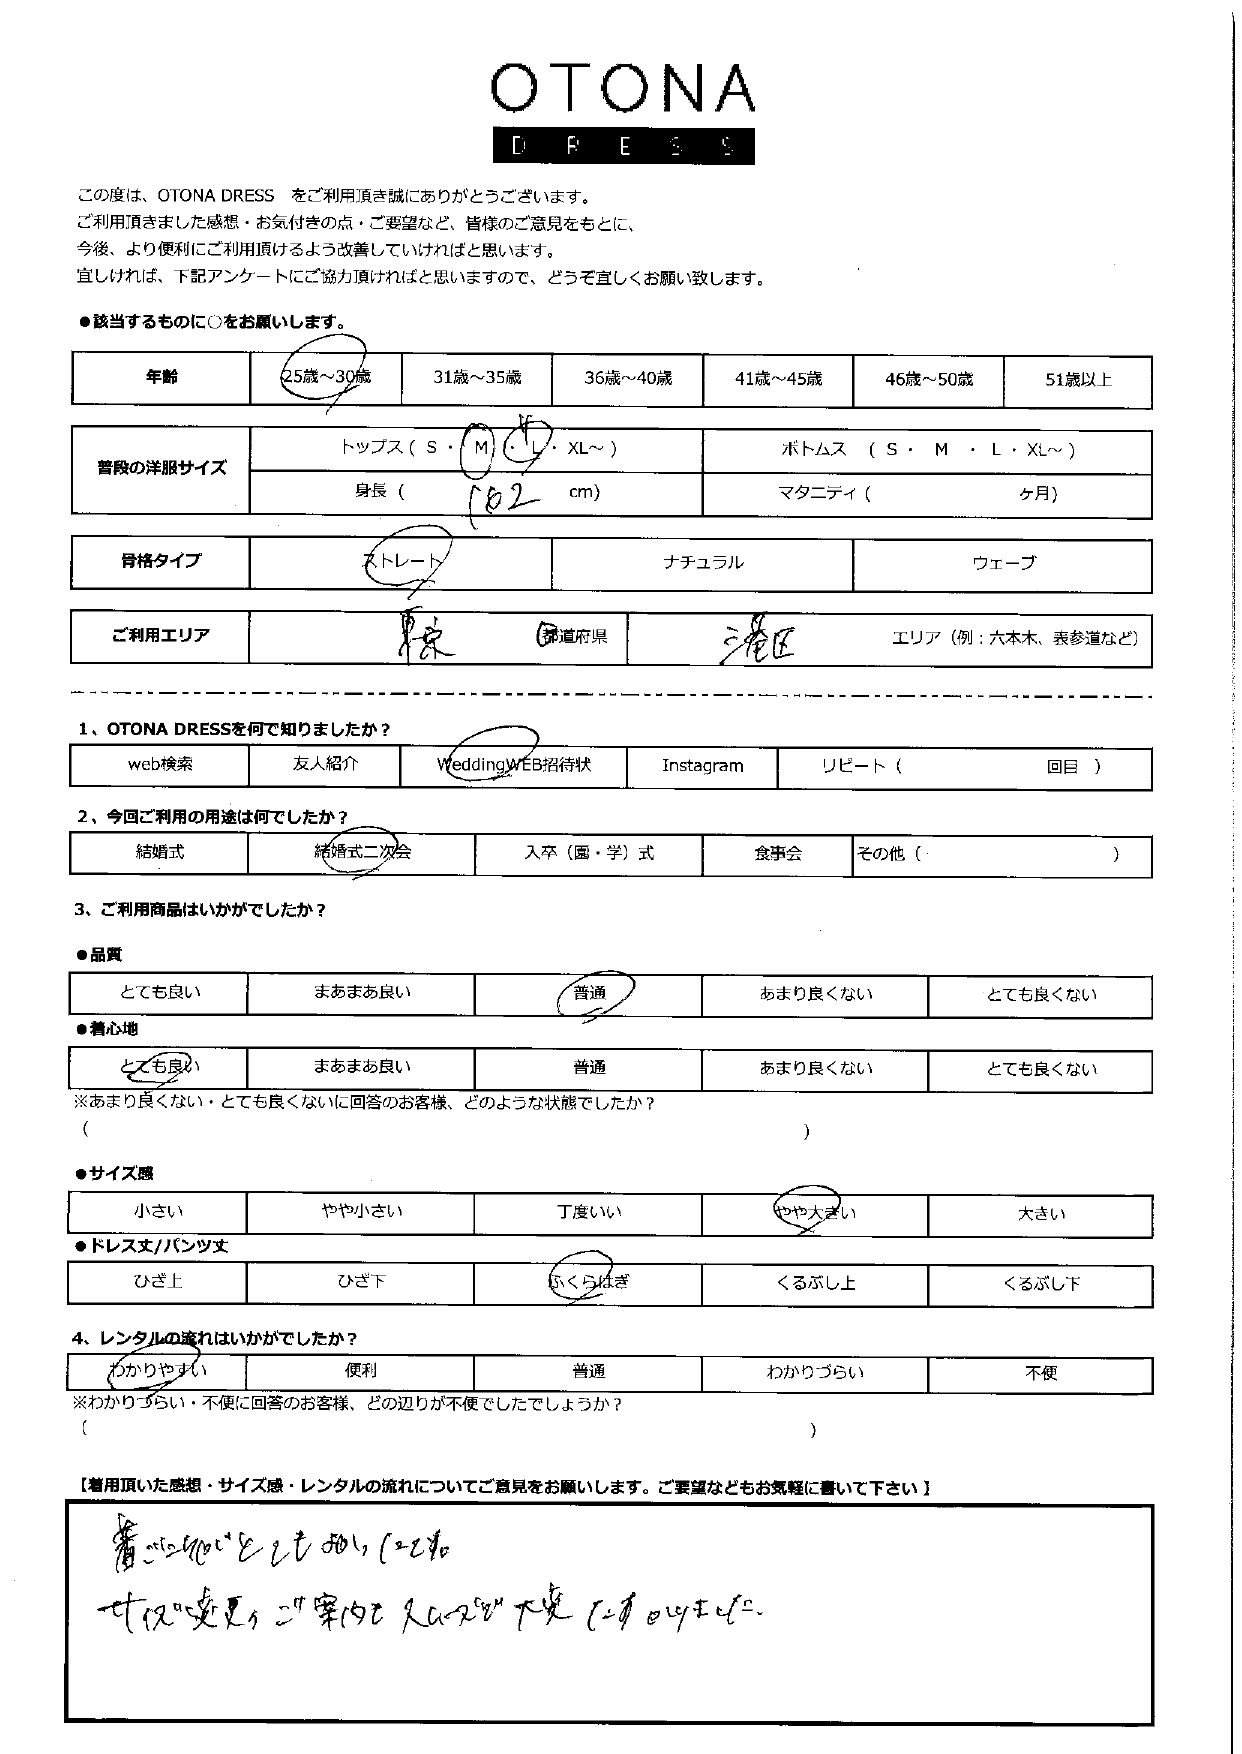 OTONA
DRESS
この度は、OTONA DRESS　をご利用頂き誠にありがとうございます。
ご利用頂きました感想・お気付きの点・ご要望など、皆様のご意見をもとに、
今後、より便利にご利用頂けるよう改善していければと思います。
宜しければ、下記アンケートにご協力頂ければと思いますので、どうぞ宜しくお願い致します。
●該当するものに○をお願いします。
年齢 25歳～30歳 31歳～35歳 36歳～40歳 41歳～45歳 46歳～50歳 51歳以上
普段の洋服サイズ トップス ( S ・ M ・ L ・ XL～ ) ボトムス ( S ・ M ・ L ・ XL～ )
身長 ( 162 cm) マタニティ ( ヶ月)
骨格タイプ ストレート ナチュラル ウェーブ
ご利用エリア 東京 都道府県 港区 エリア（例：六本木、表参道など）
1、OTONA DRESSを何で知りましたか？
web検索 友人紹介 WeddingWEB招待状 Instagram リピート ( 回目 )
2、今回ご利用の用途は何でしたか？
結婚式 結婚式二次会 入卒（園・学）式 食事会 その他 ( )
3、ご利用商品はいかがでしたか？
●品質
とても良い まあまあ良い 普通 あまり良くない とても良くない
●着心地
とても良い まあまあ良い 普通 あまり良くない とても良くない
※あまり良くない・とても良くないに回答のお客様、どのような状態でしたか？
( )
●サイズ感
小さい やや小さい 丁度いい やや大きい 大きい
●ドレス丈/パンツ丈
ひざ上 ひざ下 ふくらはぎ くるぶし上 くるぶし下
4、レンタルの流れはいかがでしたか？
わかりやすい 便利 普通 わかりづらい 不便
※わかりづらい・不便に回答のお客様、どの辺りが不便でしたでしょうか？
( )
【着用頂いた感想・サイズ感・レンタルの流れについてご意見をお願いします。ご要望などもお気軽に書いて下さい】
着ごこ地がとてもよかったです。
サイズ変更のご案内もスムーズで大変たすかりました。